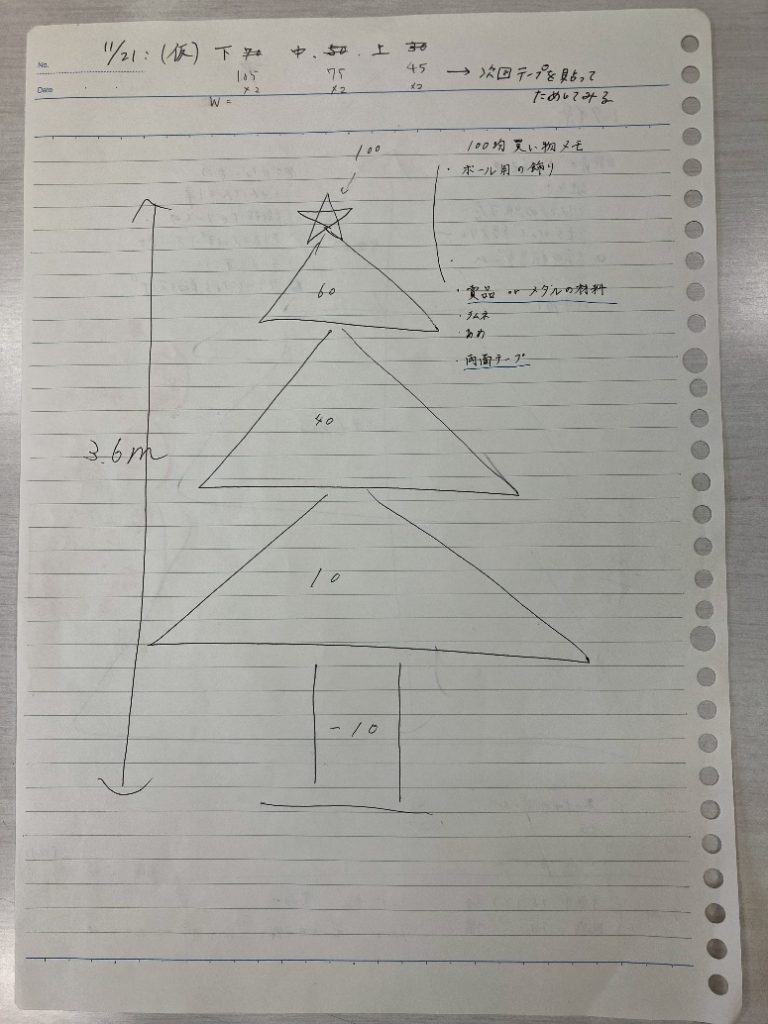 No.
Date
11/21: (仮) 下 70 中. 50. 上 30
105 75 45
×2 ×2 ×2
W =
→ 次回テープを貼って
ためしてみる
100
100均買い物メモ
・ボール用の飾り
・
・賞品 or メダルの材料
・ラムネ
・あめ
・両面テープ
60
40
3.6m
10
-10